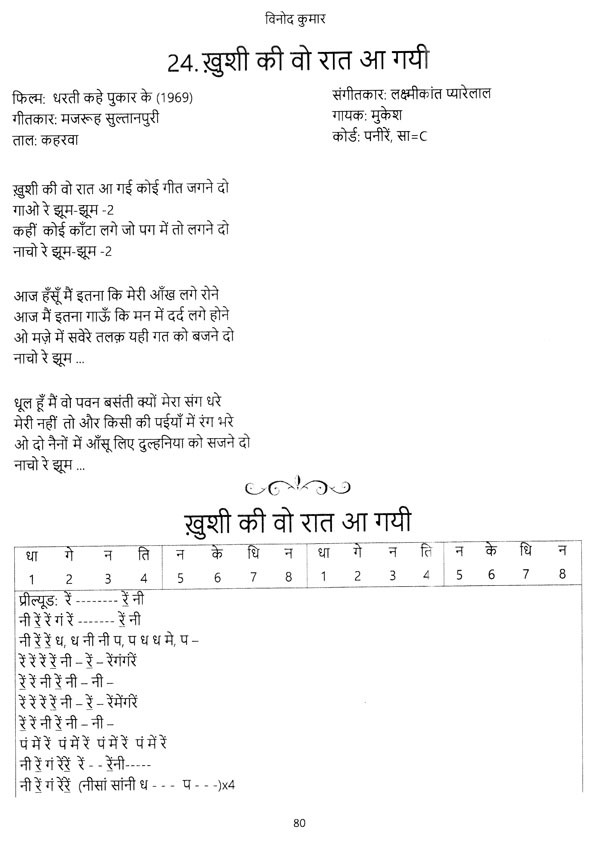 विनोद कुमार
24.ख़ुशी की वो रात आ गयी
फिल्म: धरती कहे पुकार के (1969)
संगीतकार: लक्ष्मीकांत प्यारेलाल
गीतकार: मजरूह सुल्तानपुरी
गायक: मुकेश
ताल: कहरवा
कोर्ड: पनीरें, सा=C
ख़ुशी की वो रात आ गई कोई गीत जगने दो
गाओ रे झूम-झूम -2
कहीं कोई काँटा लगे जो पग में तो लगने दो
नाचो रे झूम-झूम -2
आज हँसूँ मैं इतना कि मेरी आँख लगे रोने
आज मैं इतना गाऊँ कि मन में दर्द लगे होने
ओ मज़े में सवेरे तलक़ यही गत को बजने दो
नाचो रे झूम ...
धूल हूँ मैं वो पवन बसंती क्यों मेरा संग धरे
मेरी नहीं तो और किसी की पईयाँ में रंग भरे
ओ दो नैनों में आँसू लिए दुल्हनिया को सजने दो
नाचो रे झूम ...
ख़ुशी की वो रात आ गयी
धा गे न ति न के धि न धा गे न ति न के धि न
1 2 3 4 5 6 7 8 1 2 3 4 5 6 7 8
प्रील्यूड: रें -------- रें॒ नी
नी रें॒ रें गं रें ------- रें॒ नी
नी रें॒ रें॒ ध, ध नी नी प, प ध ध मे, प –
रें रें रें रें॒ नी – रें॒ – रेंगंगंरें
रें॒ रें नी रें॒ नी – नी –
रें रें रें रें॒ नी – रें॒ – रेंमेंगंरें
रें॒ रें नी रें॒ नी – नी –
पं में रें पं में रें पं में रें पं में रें
नी रें॒ गं रेंरें॒ रें - - रें॒नी-----
नी रें॒ गं रेंरें॒ (नीसां सांनी ध - - - प - - -)x4
80